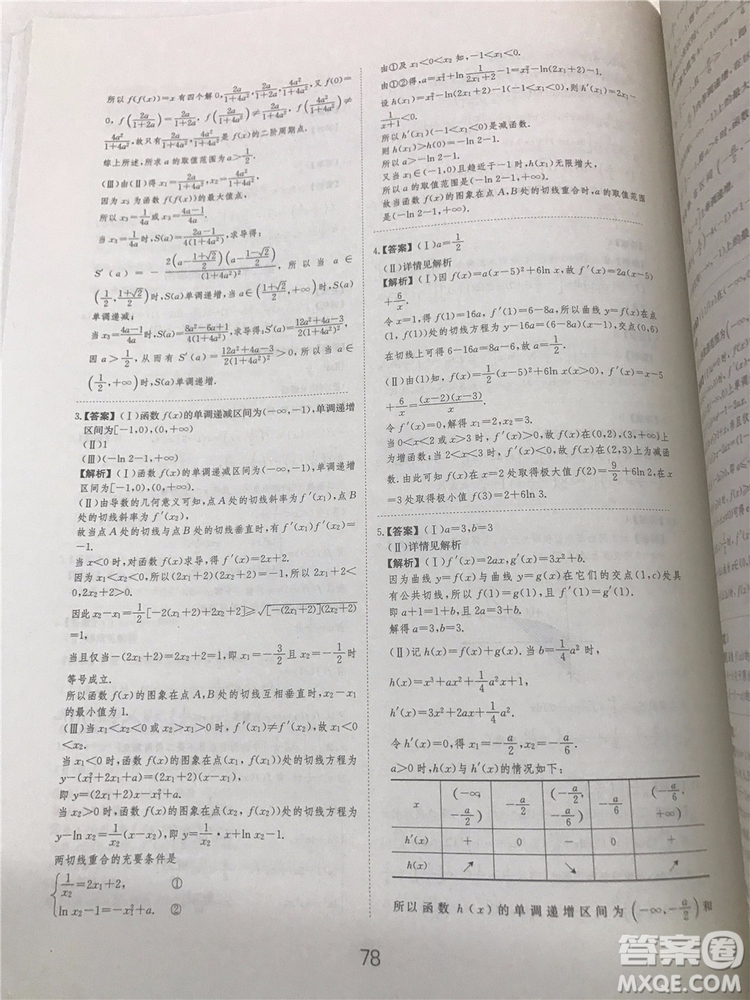 所以 f(f(x))=x 有四个解 0, 2a/(1+2a), 2a/(1+4a²), 4a²/(1+4a²), 又 f(0)=
0, f(2a/(1+2a))=2a/(1+2a), f(2a/(1+4a²))≠2a/(1+4a²), f(4a²/(1+4a²))≠
4a²/(1+4a²), 故只有 2a/(1+4a²), 4a²/(1+4a²) 是 f(x) 的二阶周期点.
综上所述, 所求 a 的取值范围为 a>1/2.
因为 x₃ 为函数 f(f(x)) 的最大值点,
所以 x₃=1/4a 或 x₃=(4a-1)/4a.
当 x₃=1/4a 时, S(a)=(2a-1)/(4(1+4a²)), 求导得:
S′(a)=-2(a-(1+√2)/2)(a-(1-√2)/2)/(1+4a²)², 所以当 a∈
(1/2, (1+√2)/2) 时, S(a) 单调递增, 当 a∈((1+√2)/2, +∞) 时 S(a)
单调递减;
当 x₃=(4a-1)/4a 时, S(a)=(8a²-6a+1)/(4(1+4a²)), 求导得: S′(a)=(12a²+4a-3)/(2(1+4a²)²)
因 a>1/2, 从而有 S′(a)=(12a²+4a-3)/(2(1+4a²)²)>0, 所以当 a∈
(1/2, +∞) 时 S(a) 单调递增.
3.【答案】(Ⅰ)函数 f(x) 的单调递减区间为(-∞,-1),单调递增
区间为[-1,0),(0,+∞)
(Ⅱ)1
(Ⅲ)(-ln 2-1,+∞)
【解析】(Ⅰ)函数 f(x) 的单调递减区间为(-∞,-1),单调递增
区间为[-1,0),(0,+∞)
(Ⅱ)由导数的几何意义可知,点 A 处的切线斜率为 f′(x₁),点 B
处的切线斜率为 f′(x₂),
故当点 A 处的切线与点 B 处的切线垂直时,有 f′(x₁)f′(x₂)=
-1.
当 x<0 时,对函数 f(x) 求导,得 f′(x)=2x+2.
因为 x₁<x₂<0,所以(2x₁+2)(2x₂+2)=-1,所以 2x₁+2<
0,2x₂+2>0.
因此 x₂-x₁=1/2[-2(x₁+2)+2x₂+2]≥√[-(2x₁+2)](2x₂+2)
=1,
当且仅当-(2x₁+2)=2x₂+2=1,即 x₁=-3/2 且 x₂=-1/2 时
等号成立.
所以函数 f(x) 的图象在点 A,B 处的切线互相垂直时,x₂-x₁
的最小值为 1.
(Ⅲ)当 x₁<x₂<0 或 x₂>x₁>0 时,f′(x₁)≠f′(x₂),故 x₁<0
<x₂.
当 x₁<0 时,函数 f(x) 的图象在点(x₁,f(x₁))处的切线方程为
y-(x₁²+2x₁+a)=(2x₁+2)(x-x₁),
即 y=(2x₁+2)x-x₁²+a.
当 x₂>0 时,函数 f(x) 的图象在点(x₂,f(x₂))处的切线方程为
y-ln x₂=1/x₂(x-x₂),即 y=1/x₂·x+ln x₂-1.
两切线重合的充要条件是
{1/x₂=2x₁+2, ①
ln x₂-1=-x₁²+a. ②
由①及 x₁<0<x₂ 知,-1<x₁<0.
由①②得,a=x₁²+ln 1/(2x₁+2)-1=x₁²-ln(2x₁+2)-1.
设 h(x₁)=x₁²-ln(2x₁+2)-1(-1<x₁<0),则 h′(x₁)=2x₁-
1/(x₁+1)<0.
所以 h(x₁)(-1<x₁<0)是减函数.
则 h(x₁)>h(0)=-ln 2-1.
所以 a>-ln 2-1.
又当 x₁∈(-1,0)且趋近于-1 时,h(x₁)无限增大,
所以 a 的取值范围是(-ln 2-1,+∞).
故当函数 f(x) 的图象在点 A,B 处的切线重合时,a 的取值范围
是(-ln 2-1,+∞).
4.【答案】(Ⅰ)a=1/2
(Ⅱ)详情见解析
【解析】(Ⅰ)因 f(x)=a(x-5)²+6ln x,故 f′(x)=2a(x-5)
+6/x.
令 x=1,得 f(1)=16a,f′(1)=6-8a,所以曲线 y=f(x)在点
(1,f(1))处的切线方程为 y-16a=(6-8a)(x-1),交点(0,6)
在切线上可得 6-16a=8a-6,故 a=1/2.
(Ⅱ)由(1)知,f(x)=1/2(x-5)²+6ln x(x>0),f′(x)=x-5+
6/x=(x-2)(x-3)/x.
令 f′(x)=0,解得 x₁=2,x₂=3.
当 0<x<2 或 x>3 时,f′(x)>0,故 f(x)在(0,2),(3,+∞)上
为增函数;当 2<x<3 时,f′(x)<0,故 f(x)在(2,3)上为减函数.
由此可知 f(x)在 x=2 处取得极大值 f(2)=9/2+6ln 2,在 x=3
处取得极小值 f(3)=2+6ln 3.
5.【答案】(Ⅰ)a=3,b=3
(Ⅱ)详情见解析
【解析】(Ⅰ)f′(x)=2ax,g′(x)=3x²+b.
因为曲线 y=f(x)与曲线 y=g(x)在它们的交点(1,c)处具
有公共切线,所以 f(1)=g(1),f′(1)=g′(1).
即 a+1=1+b,且 2a=3+b.
解得 a=3,b=3.
(Ⅱ)记 h(x)=f(x)+g(x).当 b=1/4a² 时,
h(x)=x³+ax²+1/4a²x+1,
h′(x)=3x²+2ax+1/4a².
令 h′(x)=0,得 x₁=-a/2,x₂=-a/6.
a>0 时,h(x)与 h′(x)的情况如下:
x (-∞,-a/2) -a/2 (-a/2,-a/6) -a/6 (-a/6,+∞)
h′(x) + 0 - 0 +
h(x) ↗ ↘ ↗
所以函数 h(x)的单调递增区间为(-∞,-a/2)和
78
答案圈
MXQE.COM